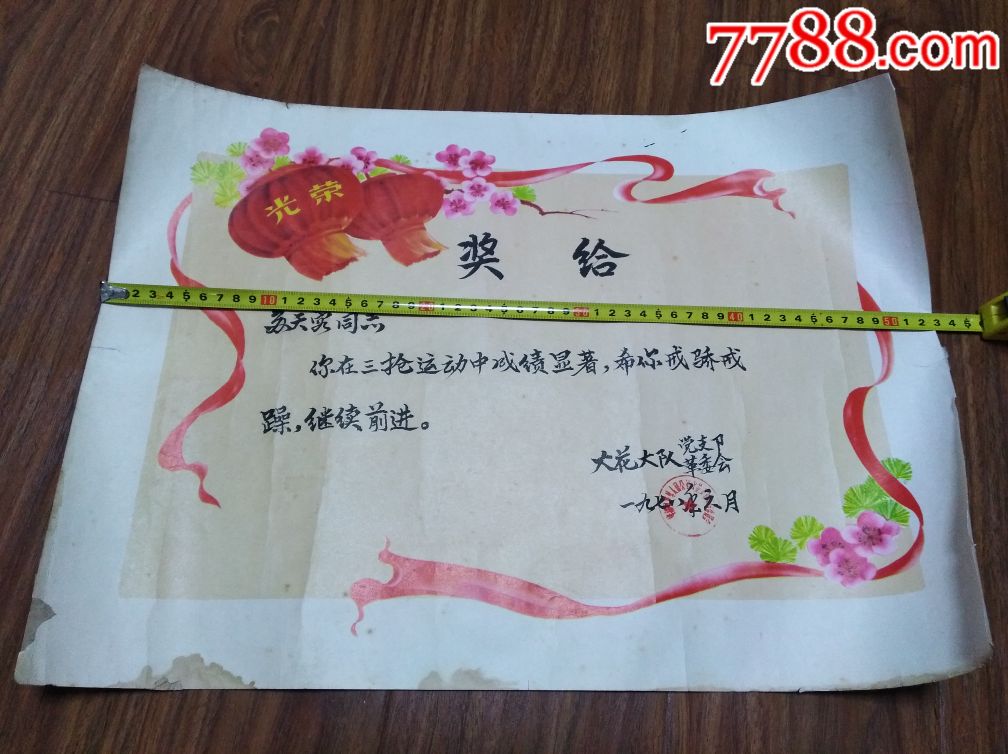 7788.com
光荣
奖给
苏天容同志
你在三抢运动中成绩显著,希你戒骄戒
躁,继续前进。
大花大队党支卩
革委会
一九七八年六月
2 3 4 5 6 7 8 9 10 1 2 3 4 5 6 7 8 9 20 1 2 3 4 5 6 7 8 9 30 1 2 3 4 5 6 7 8 9 40 1 2 3 4 5 6 7 8 9 50 1 2 3 4 5